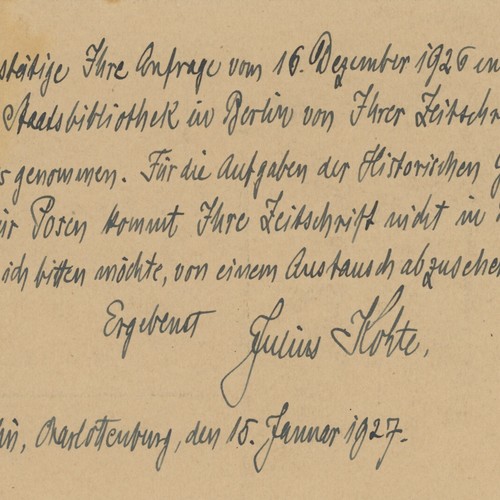 stätige Ihre Anfrage vom 16. Dezember 1926 in
Staatsbibliothek in Berlin von Ihrer Zeitschr
s genommen. Für die Aufgaben der Historischen G
ür Posen kommt Ihre Zeitschrift nicht in
ich bitten möchte, von einem Austausch abzusehe
Ergebenst
Julius Kohte,
in, Charlottenburg, den 15. Januar 1927.